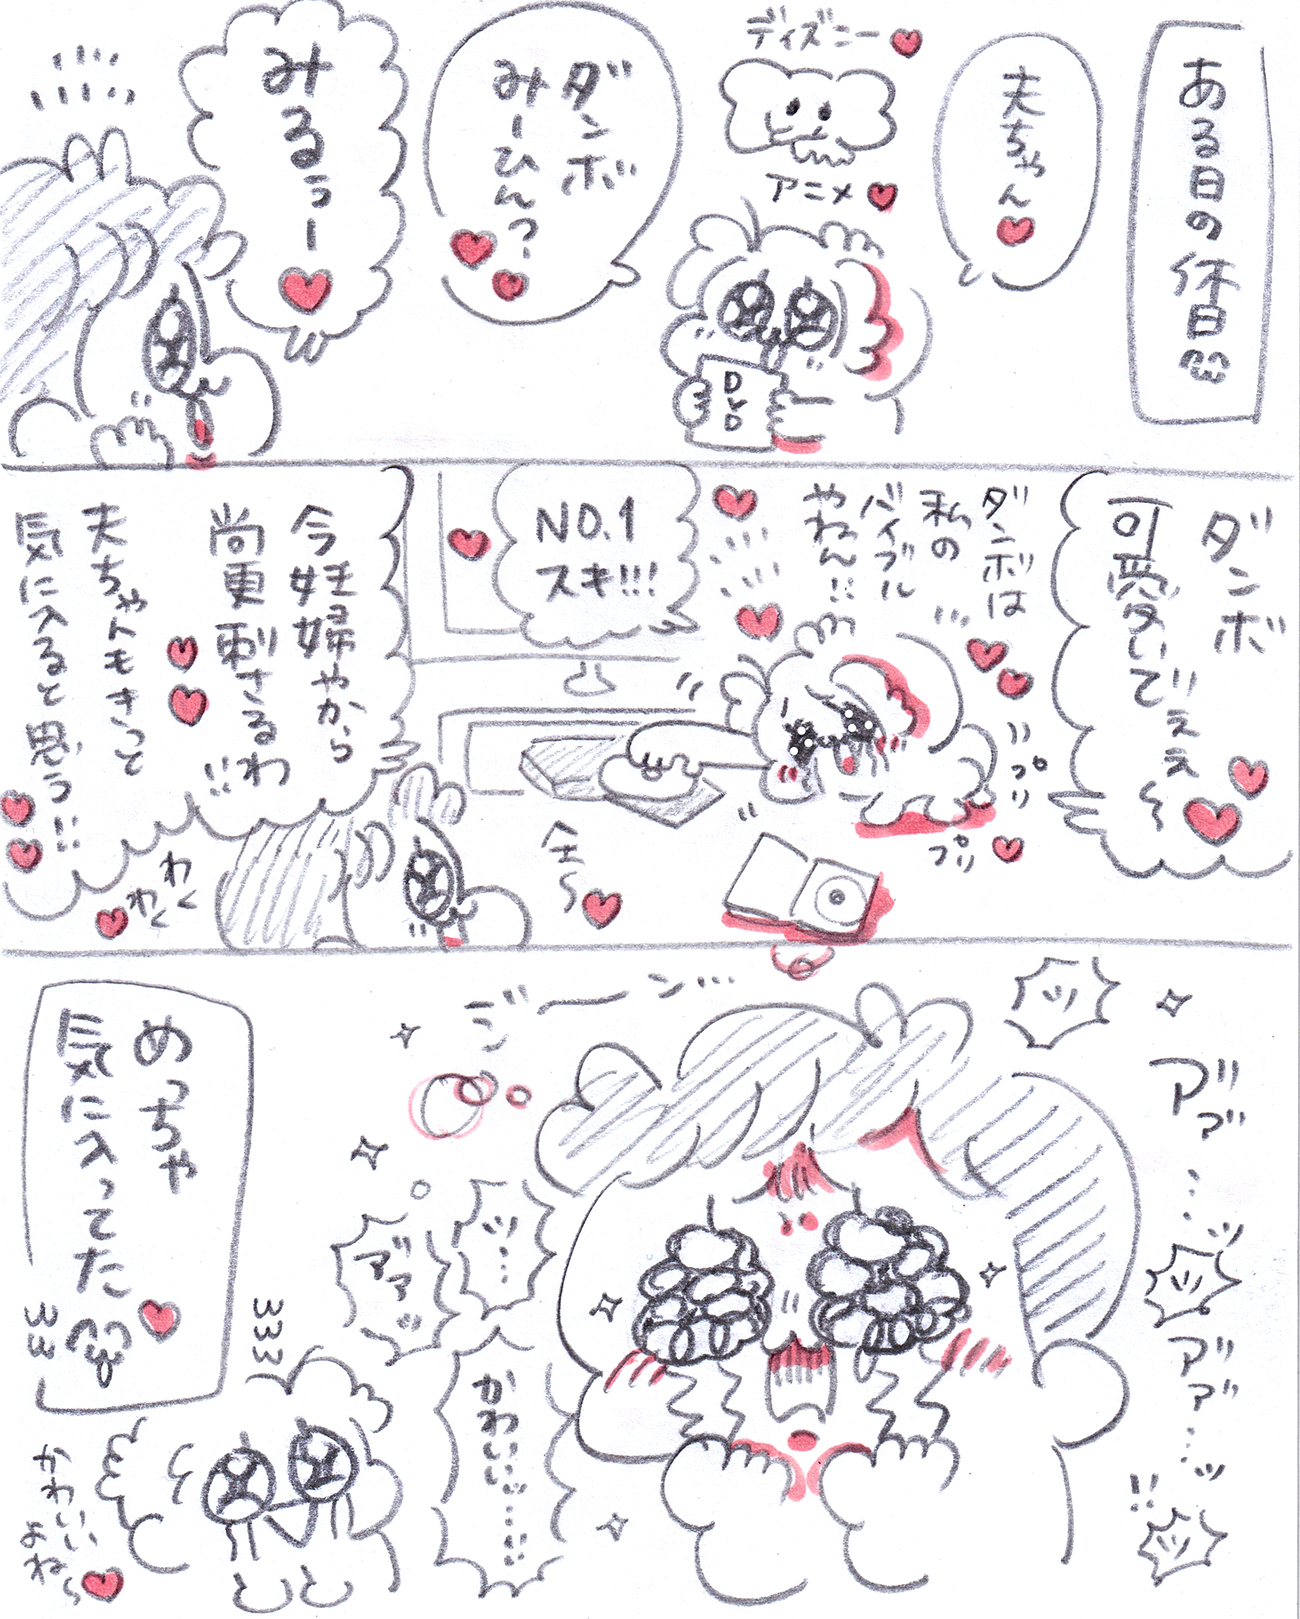 ある日の休日
夫ちゃん
ディズニー
アニメ
DVD
ダンボ
みーひんっ?
みるぅー
ダンボ
可愛いでぇぇ〜
ダンボは
私の
バイブル
やねん!!
プリ
プリ
NO.1
スキ!!!
今妊婦やから
尚更刺さるわ!!
夫ちゃんもきっと
気に入ると思う!!
わく
わく
ア゛ア゛…ッ
ア゛ア゛…ッ!!
ッ
ジーン…
ッ…
ア゛ア゛ッ
かわいい……!!
めっちゃ
気に入ってた
かわいい
よね〜